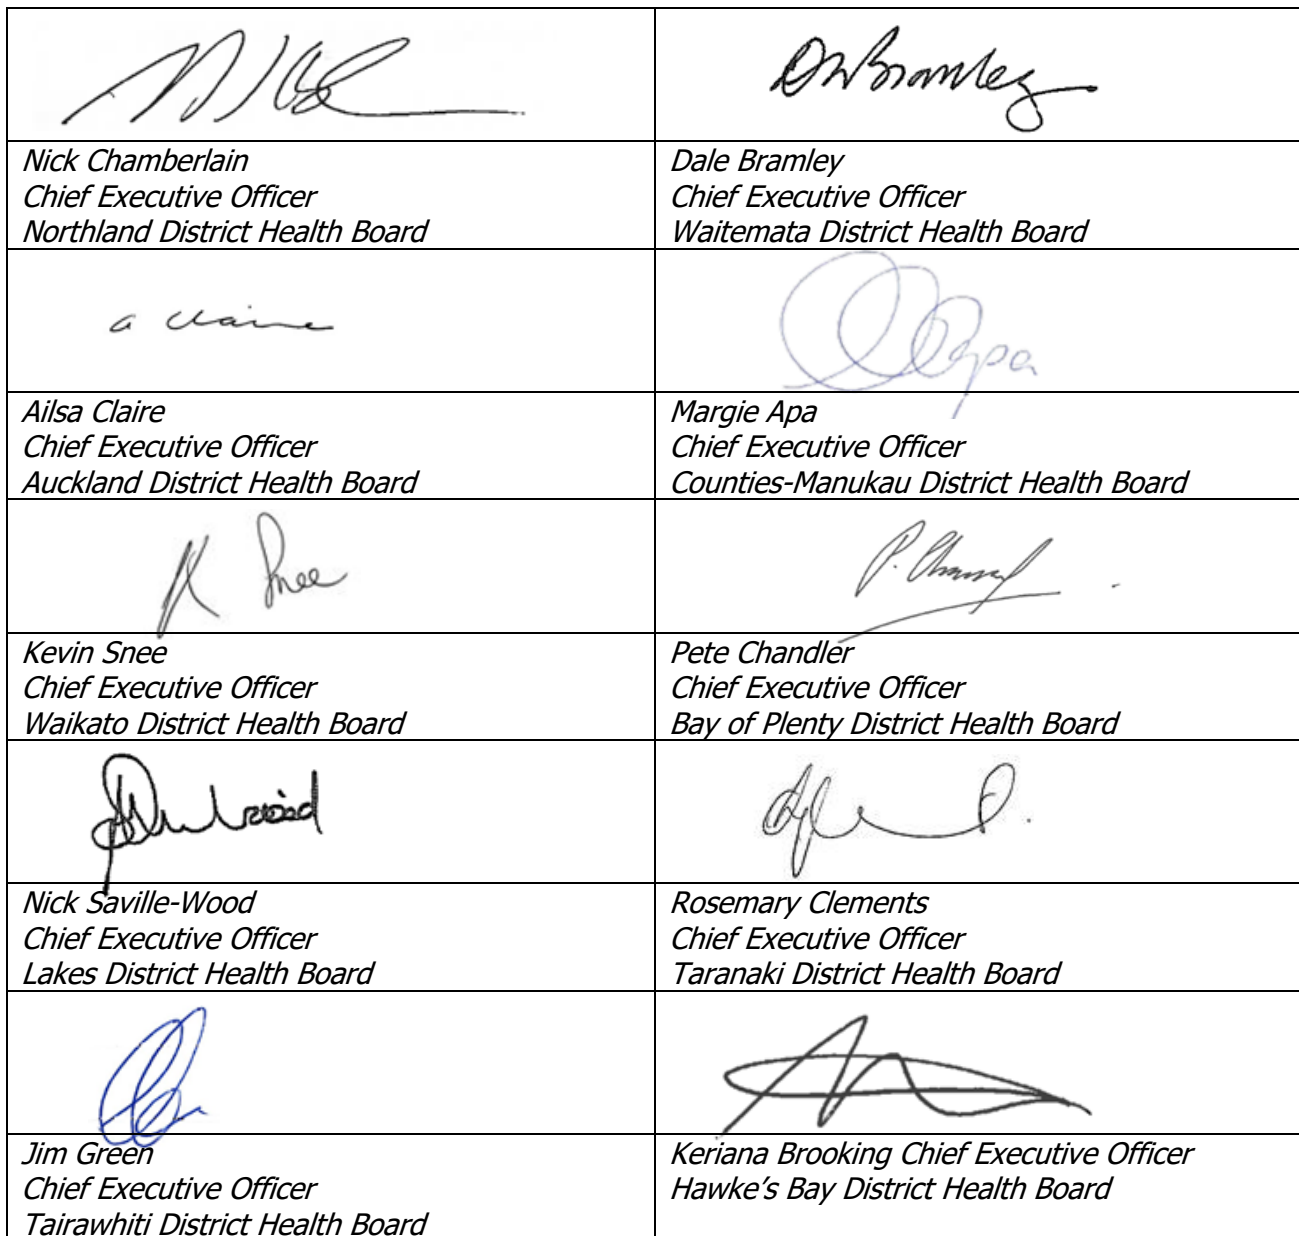 DWBramley
Nick Chamberlain
Chief Executive Officer
Northland District Health Board
Dale Bramley
Chief Executive Officer
Waitemata District Health Board
a Claire
Apa
Ailsa Claire
Chief Executive Officer
Auckland District Health Board
Margie Apa
Chief Executive Officer
Counties-Manukau District Health Board
K Snee
P. Chan
Kevin Snee
Chief Executive Officer
Waikato District Health Board
Pete Chandler
Chief Executive Officer
Bay of Plenty District Health Board
Nick Saville-Wood
Chief Executive Officer
Lakes District Health Board
Rosemary Clements
Chief Executive Officer
Taranaki District Health Board
Jim Green
Chief Executive Officer
Tairawhiti District Health Board
Keriana Brooking Chief Executive Officer
Hawke's Bay District Health Board